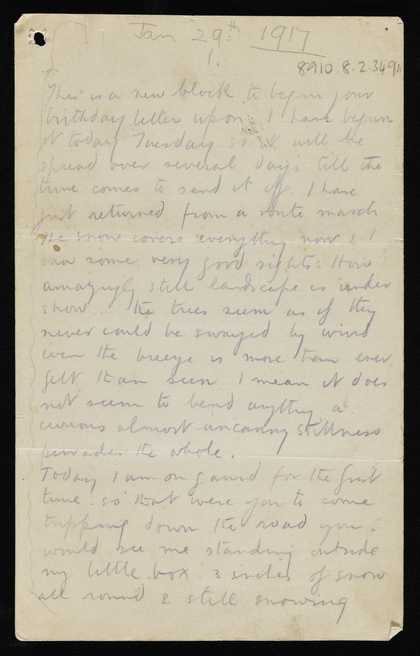 Jan 29th 1917
1.
8910.8.2.349
This is a new block to begin your
birthday letter upon. I have begun
it today Tuesday so it will be
spread over several days till the
time comes to send it off. I have
just returned from a route march
the snow covers everything now & I
saw some very good sights. How
amazingly still landscape is under
snow. the trees seem as if they
never could be swayed by wind
even the breeze is more than ever
felt than seen I mean it does
not seem to bend anything a
curious almost uncanny stillness
pervades the whole.
Today I am on guard for the first
time. so that were you to come
tripping down the road you
would see me standing outside
my little box 3 inches of snow
all round & still snowing